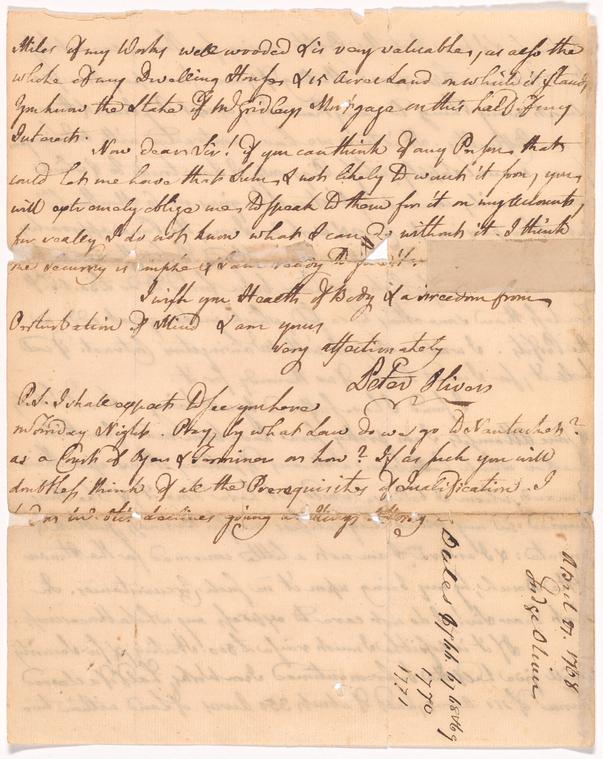 Miles of my Works well wooded & is very valuable, as also the
whole of my Dwelling House & 15 Acres Land on which it Stands
You know the State of Mr Gridleys Mortgage on this half of my
Interest.
Now dear Sir! if you can think of any Person that
could let me have that Sum, & not likely to want it soon, you
will extremely oblige me to speak to them for it on my Account,
for realy I do not know what I can do without it. I think
the security is ample & I am ready to
I wish you Health of Body & a freedom from
Perturbation of Mind & am yours
very affectionately
Peter Oliver
P.S. I shall expect to see you here
on Friday Night. Pray, by what Law do we go to Nantucket?
as a Court of Oyer & Terminer or how? If as such you will
doubtless think of all the Prerequisites of Qualification. I
declines giving
April 27. 1768
Judge Oliver
Dates 67 68 & 69
1770
1771